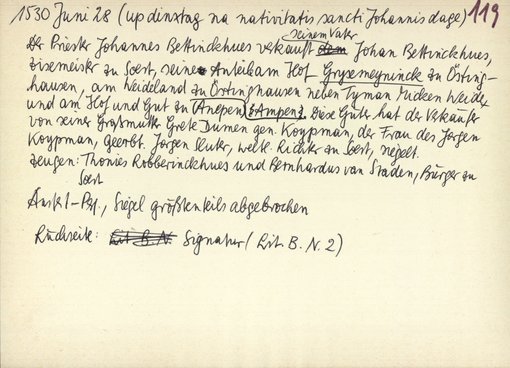 1530 Juni 28 (up dinxtag na nativitatis sancti Johannis dage) 119
Der Priester Johannes Bettinckhues verkauft seinem Vater Johan Bettinckhues,
zisemeister zu Soest, seine Anteile am Hof Grysemeynincke zu Östing-
hausen, am Weideland zu Östinghausen neben Tyman Micken Weide
und am Hof und Gut zu Anepen [Ampen]. Diese Güter hat der Verkäufer
von seiner Großmutter Grete Dumen gen. Koypman, der Frau des Jörgen
Koypman, geerbt. Jörgen , weltl. Richter zu Soest, siegelt.
Zeugen: Thonies Robberinckhues und Bernhardus van Staden, Bürger zu
Soest
Ausf. 1 - Pg., Siegel größtenteils abgebrochen
Rückseite: Lit. B. N. Signatur (Lit. B. N. 2)